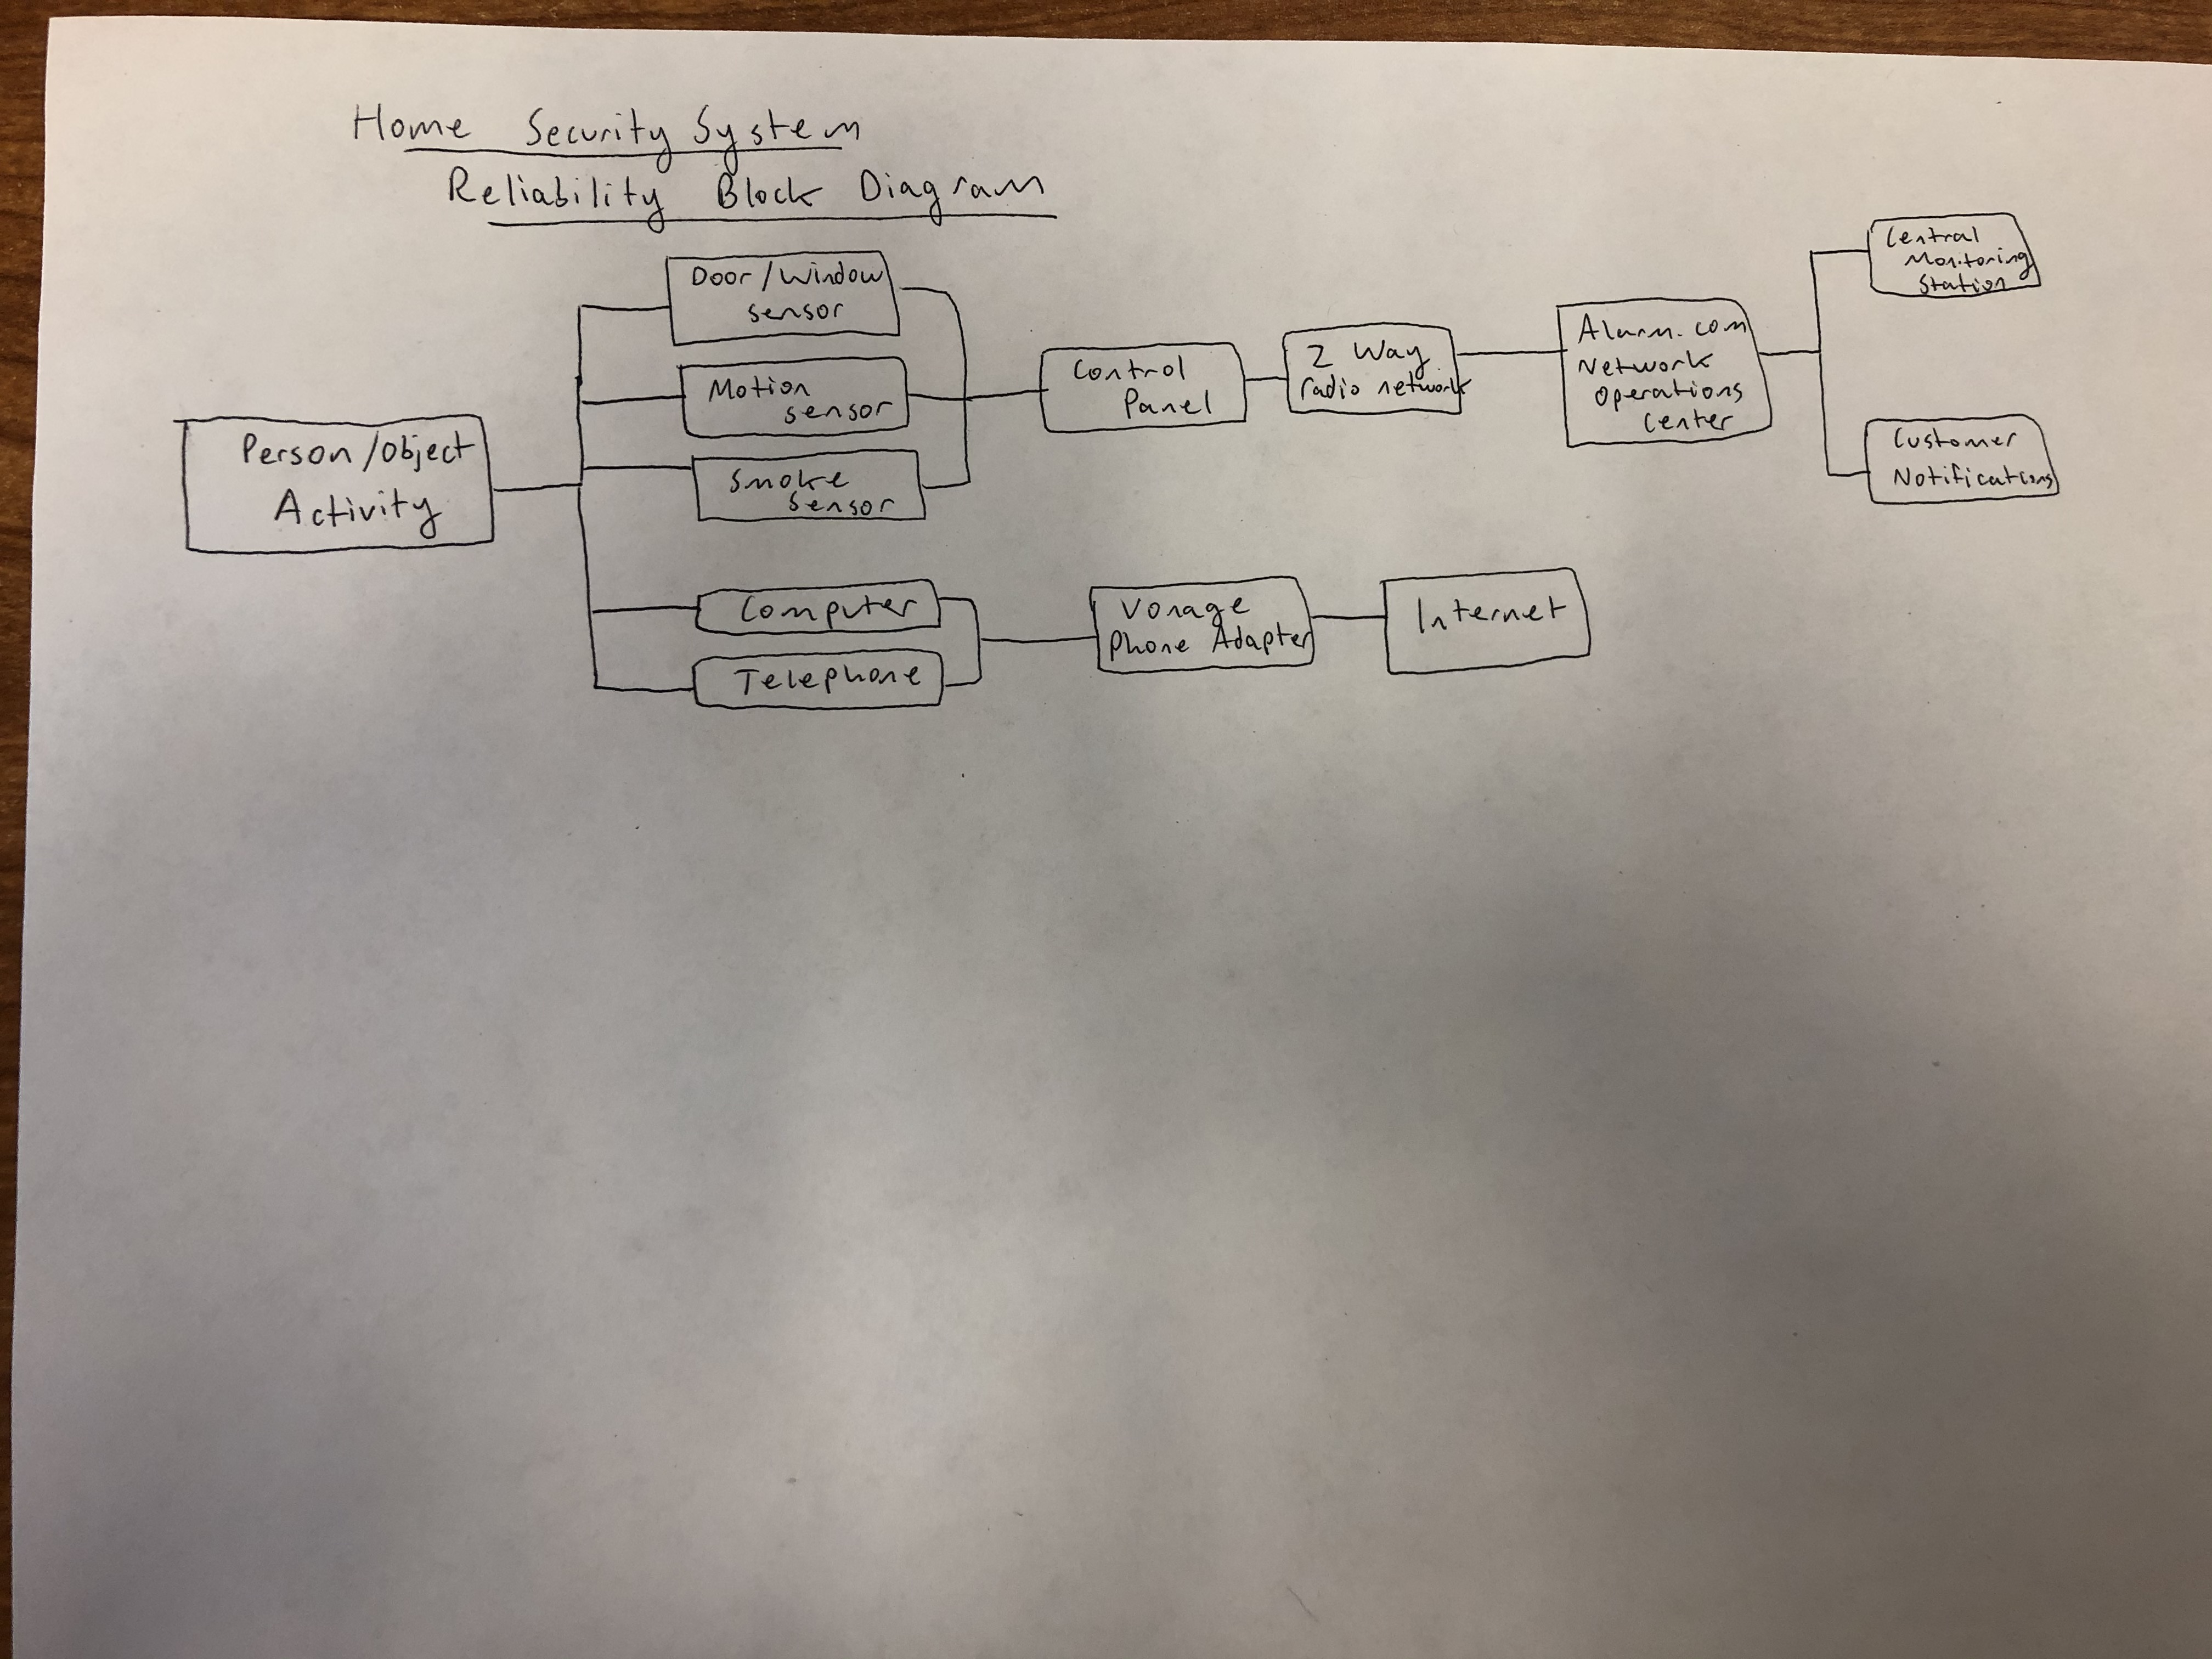 Home Security System
Reliability Block Diagram
Person/Object
Activity
Door/Window
sensor
Motion
sensor
Smoke
sensor
Computer
Telephone
Control
Panel
2 Way
radio network
Alarm.com
Network
Operations
Center
Central
Monitoring
Station
Customer
Notifications
Vonage
Phone Adapter
Internet